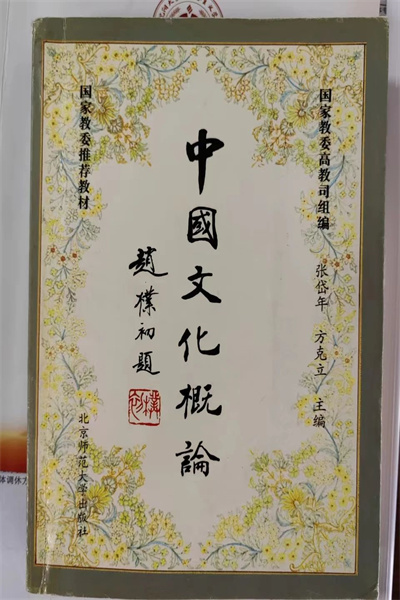 国家教委高教司组编
张岱年 方克立 主编
中國文化概論
趙樸初題
国家教委推荐教材
北京师范大学出版社
体调休方